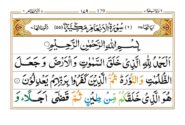 سُورَةُ الْاَنْعَامِ مَكِّيَّةٌ
بِسْمِ اللّٰهِ الرَّحْمٰنِ الرَّحِيْمِ
اَلْحَمْدُ لِلّٰهِ الَّذِيْ خَلَقَ السَّمٰوٰتِ وَالْاَرْضَ وَجَعَلَ
الظُّلُمٰتِ وَالنُّوْرَ ثُمَّ الَّذِيْنَ كَفَرُوْا بِرَبِّهِمْ يَعْدِلُوْنَ
هُوَ الَّذِيْ خَلَقَكُمْ مِّنْ طِيْنٍ ثُمَّ قَضٰٓى اَجَلًا وَ